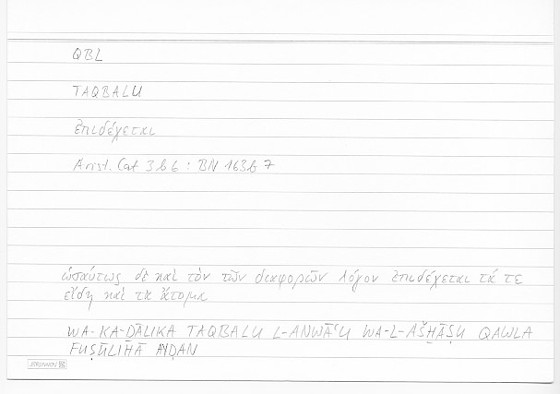 QBL
TAQBALU
ἐπιδέχεται
Arist. Cat 3b6 : BN 163b7
ὡσαύτως δὲ καὶ τὸν τῶν διαφορῶν λόγον ἐπιδέχεται τά τε
εἴδη καὶ τὰ ἄτομα
WA-KA-ḎĀLIKA TAQBALU L-ANWĀʿU WA-L-AŠḪĀṢU QAWLA
FUṢŪLIHĀ AYḌAN